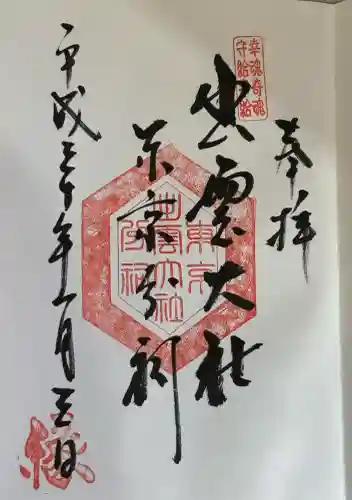 奉拝
幸魂奇魂
守給幸給
出雲大社
東京分祠
平成三十年一月三日
出雲大社
東京分祠
縁